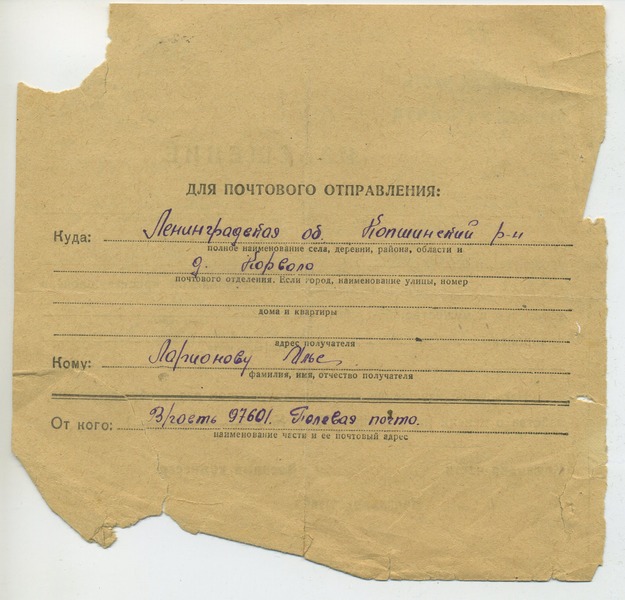 ДЛЯ ПОЧТОВОГО ОТПРАВЛЕНИЯ:
Куда: Ленинградская об. Копшинский р-н
полное наименование села, деревни, района, области и
д. Корвала
почтового отделения. Если город, наименование улицы, номер
дома и квартиры
адрес получателя
Кому: Ларионову Илье
фамилия, имя, отчество получателя
От кого: В/часть 97601. Полевая почта.
наименование части и ее почтовый адрес